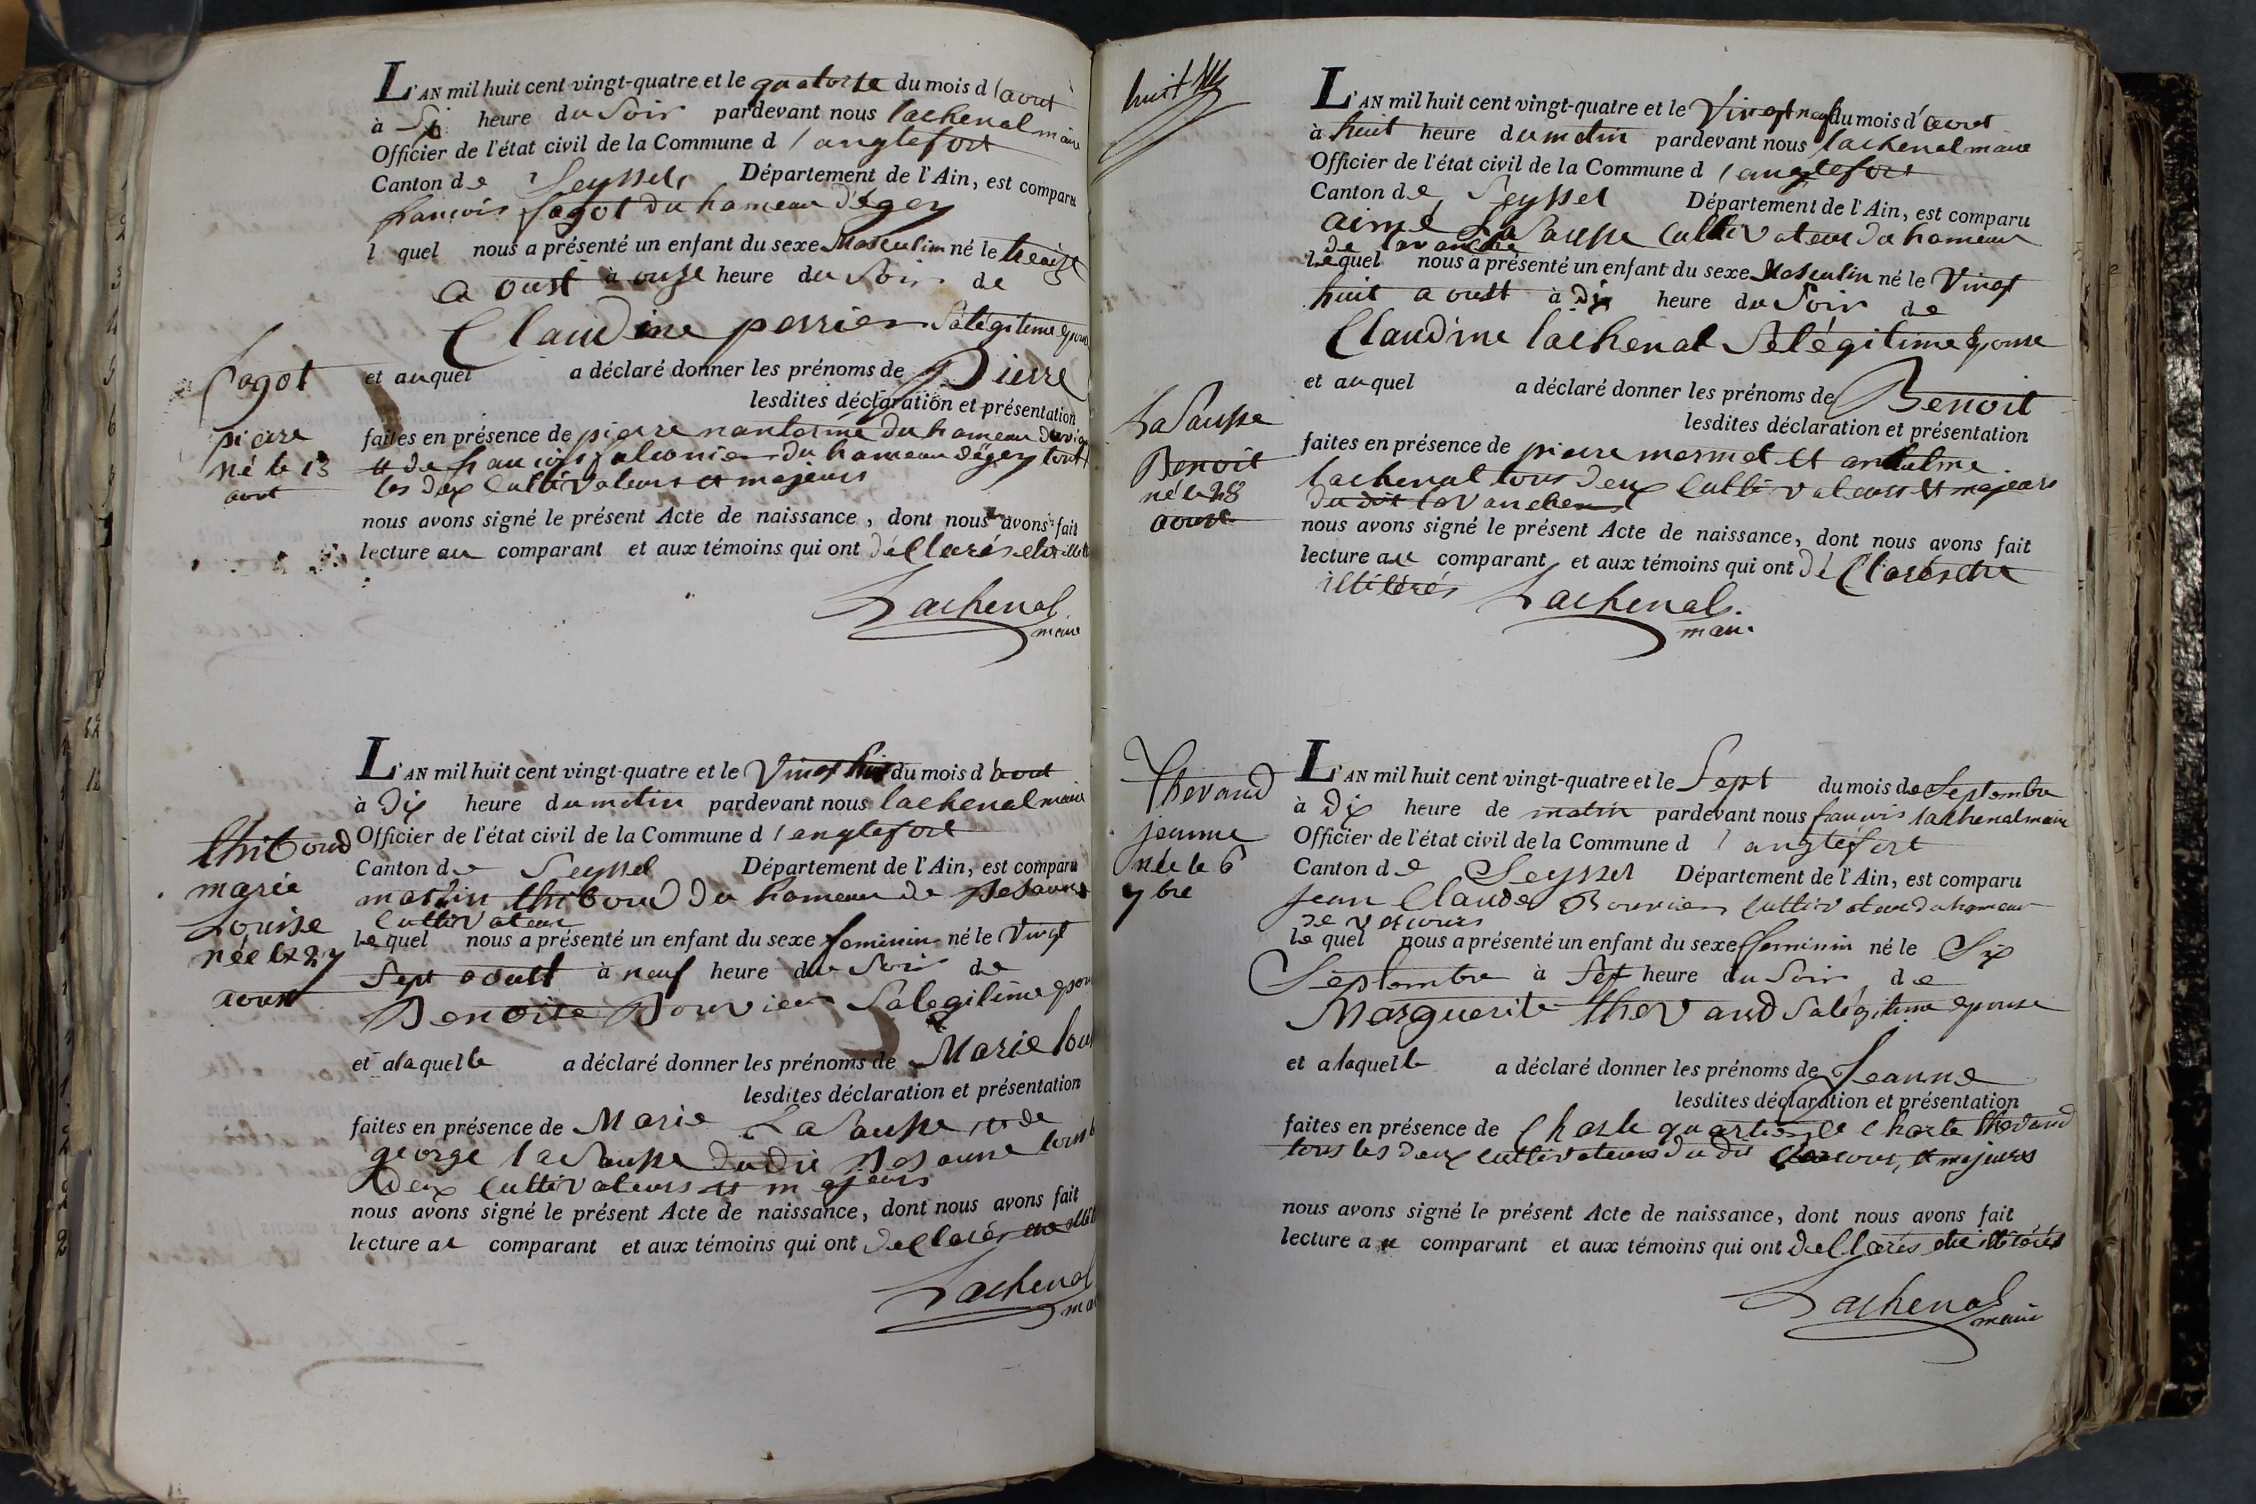 L'AN mil huit cent vingt-quatre et le quatorse du mois d'aout
à Six heure du Soir pardevant nous lachenal maire
Officier de l'état civil de la Commune d'anglefort
Canton de Seyssel Département de l'Ain, est comparu
francois fagot du hameau d'égey
l quel nous a présenté un enfant du sexe Masculin né le treize
aoust à onze heure du Soir de
Claudine perrier Sa légitime Epouse
fagot
et auquel a déclaré donner les prénoms de Pierre
lesdites déclaration et présentation
pierre
né le 13
aout
faites en présence de pierre nantermé du hameau
et de francois falconier du hameau d'égey tout
les deux Cultivateurs et majeurs
nous avons signé le présent Acte de naissance, dont nous avons fait
lecture au comparant et aux témoins qui ont déClarés
Lachenal
maire
L'AN mil huit cent vingt-quatre et le Vingt huit du mois d'aout
à Dix heure du matin pardevant nous lachenal maire
Officier de l'état civil de la Commune d'anglefort
thiboud
marie
Louise
née le 27
aoust
Canton de Seyssel Département de l'Ain, est comparu
martin thiboud du hameau de
Cultivateur
le quel nous a présenté un enfant du sexe feminin né le Vingt
Sept aoust à neuf heure du Soir de
Benoite Bouvier Sa legitime epouse
et a laquelle a déclaré donner les prénoms de Marie
lesdites déclaration et présentation
faites en présence de Marie LaSausse et de
george laSausse dudit tous
deux Cultivateurs et majeurs
nous avons signé le présent Acte de naissance, dont nous avons fait
lecture au comparant et aux témoins qui ont déclarés
Lachenal
huit
L'AN mil huit cent vingt-quatre et le Vingt neuf du mois d'aout
à huit heure du matin pardevant nous lachenal maire
Officier de l'état civil de la Commune d'anglefort
Canton de Seyssel Département de l'Ain, est comparu
aimé LaSausse Cultivateur du hameau
de
lequel nous a présenté un enfant du sexe Masculin né le Vingt
huit aoust à Dix heure du Soir de
Claudine lachenal Sa légitime Epouse
et auquel a déclaré donner les prénoms de Benoit
lesdites déclaration et présentation
LaSausse
Benoit
né le 28
aoust
faites en présence de piere mermet et antelme
lachenal tous deux Cultivateurs et majeurs
dudit
nous avons signé le présent Acte de naissance, dont nous avons fait
lecture au comparant et aux témoins qui ont déClarés etre
illiterés
Lachenal
maire
Thevaud
jeanne
née le 6
7bre
L'AN mil huit cent vingt-quatre et le Sept du mois de Septembre
à Dix heure de matin pardevant nous francois lachenal maire
Officier de l'état civil de la Commune d'anglefort
Canton de Seyssel Département de l'Ain, est comparu
Jean Claude Bouvier Cultivateur du hameau
de
le quel nous a présenté un enfant du sexe feminin né le Six
Septembre à Sept heure du Soir de
Marguerite thevaud Sa légitime epouse
et a laquelle a déclaré donner les prénoms de Jeanne
lesdites déclaration et présentation
faites en présence de Charle quartier et Charle thevaud
tous les deux cultivateurs dudit et majeurs
nous avons signé le présent Acte de naissance, dont nous avons fait
lecture au comparant et aux témoins qui ont déClarés etre illiterés
Lachenal
maire